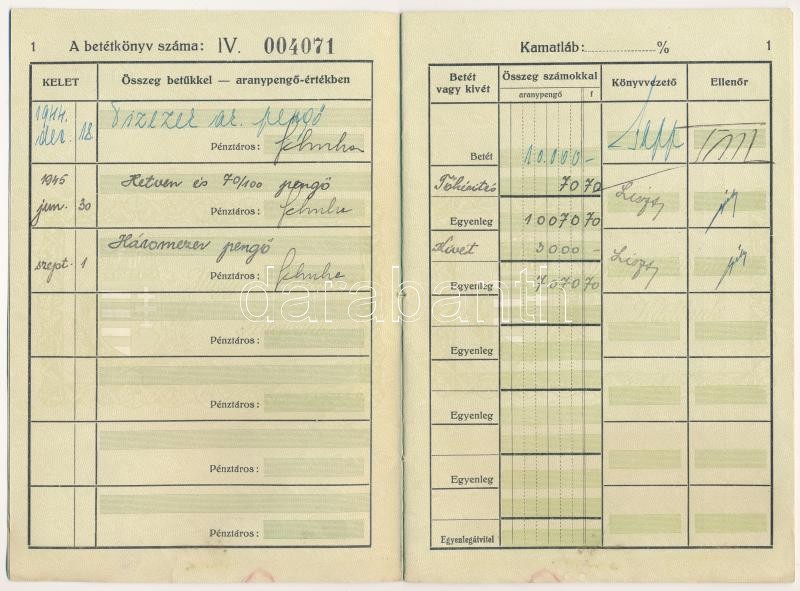 1 A betétkönyv száma: IV. 004071
KELET Összeg betűkkel — aranypengő-értékben
1944. dec. 18 Tízezer ar. pengő
Pénztáros:
1945 jun. 30 Hetven és 70/100 pengő
Pénztáros:
szept. 1 Háromezer pengő
Pénztáros:
Pénztáros:
Pénztáros:
Pénztáros:
Pénztáros:
Kamatláb: % 1
Betét vagy kivét Összeg számokkal Könyvvezető Ellenőr
aranypengő f
Betét 10.000 -
Tőkésítés 70 70
Egyenleg 10070 70
Kivét 3000 -
Egyenleg 7070 70
Egyenleg
Egyenleg
Egyenleg
Egyenlegátvitel
darabanth